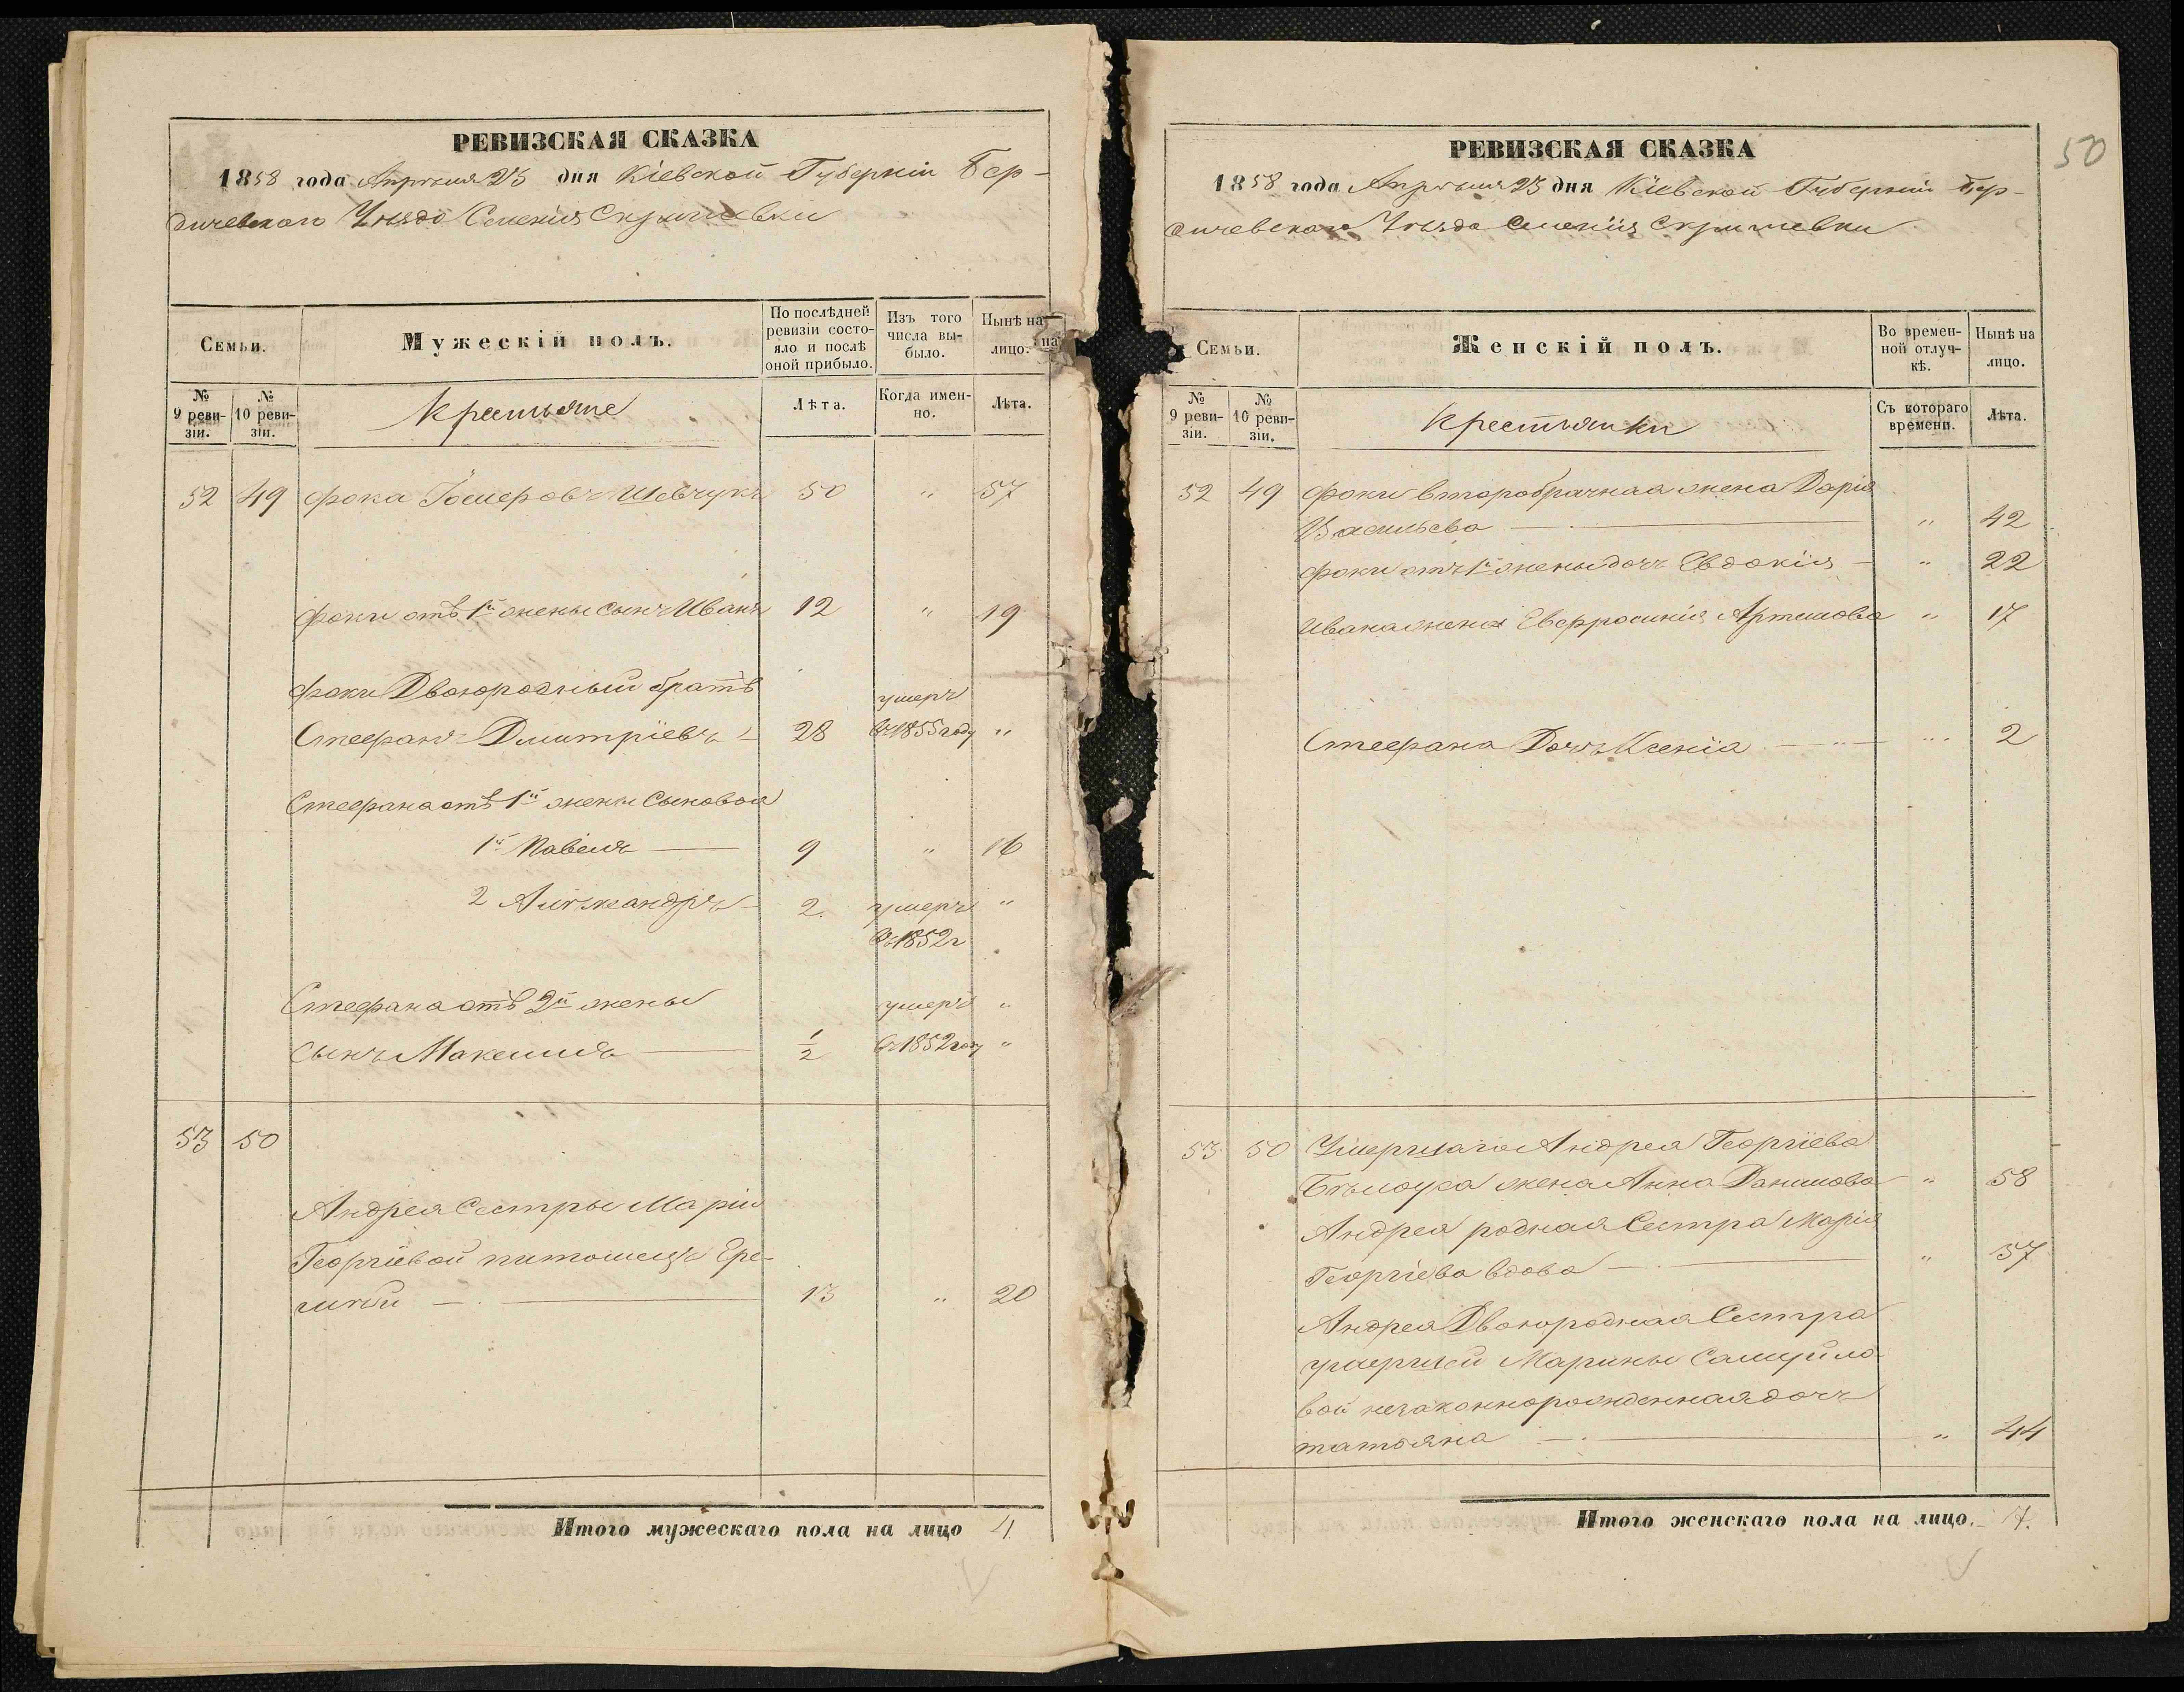 РЕВИЗСКАЯ СКАЗКА
1858 года Апрѣля 25 дня Кіевской Губерніи Бер-
дичевскаго Уѣзда Селенія Скригилевки
Семьи.
Мужескій полъ.
По послѣдней
ревизіи состо-
яло и послѣ
оной прибыло.
Изъ того
числа вы-
было.
Нынѣ на
лицо.
№
9 реви-
зіи.
№
10 реви-
зіи.
Крестьяне
Лѣта.
Когда имен-
но.
Лѣта.
52 49 Фока Іосифовъ Шевчукъ 50 " 57
Фоки отъ 1й жены сынъ Иванъ 12 " 19
Фоки Двоюродный братъ умеръ
Стефанъ Дмитріевъ 28 въ 1855 году "
Стефана отъ 1й жены Сыновья
1й Павелъ 9 " 16
2 Алѣксандръ 2 умеръ "
въ 1852 г
Стефана отъ 2й жены умеръ "
сынъ Максимъ 1/2 въ 1852 году "
53 50
Андрея Сестры Маріи
Георгіевой питомецъ Ере-
мѣй 13 " 20
Итого мужескаго пола на лицо 4
50
РЕВИЗСКАЯ СКАЗКА
1858 года Апрѣля 25 дня Кіевской Губерніи Бер-
дичевскаго Уѣзда Селенія Скригилевки
на
Семьи.
Женскій полъ.
Во времен-
ной отлуч-
кѣ.
Нынѣ на
лицо.
№
9 реви-
зіи.
№
10 реви-
зіи.
Крестьянки
Съ котораго
времени.
Лѣта.
52 49 Фоки второбрачная жена Дарія
Васильева " 42
Фоки отъ 1й жены дочь Евдокія " 22
Ивана жена Евфросинія Артемова " 17
Стефана Дочь Ксенія " 2
53 50 Умершаго Андрея Георгіева
Бѣлоуса жена Анна Данилова " 58
Андрея родная Сестра Марія
Георгіева вдова " 57
Андрея Двоюродная Сестра
умершей Марины Самуйло-
вой незаконнорожденная дочь
татьяна " 44
Итого женскаго пола на лицо. 7.